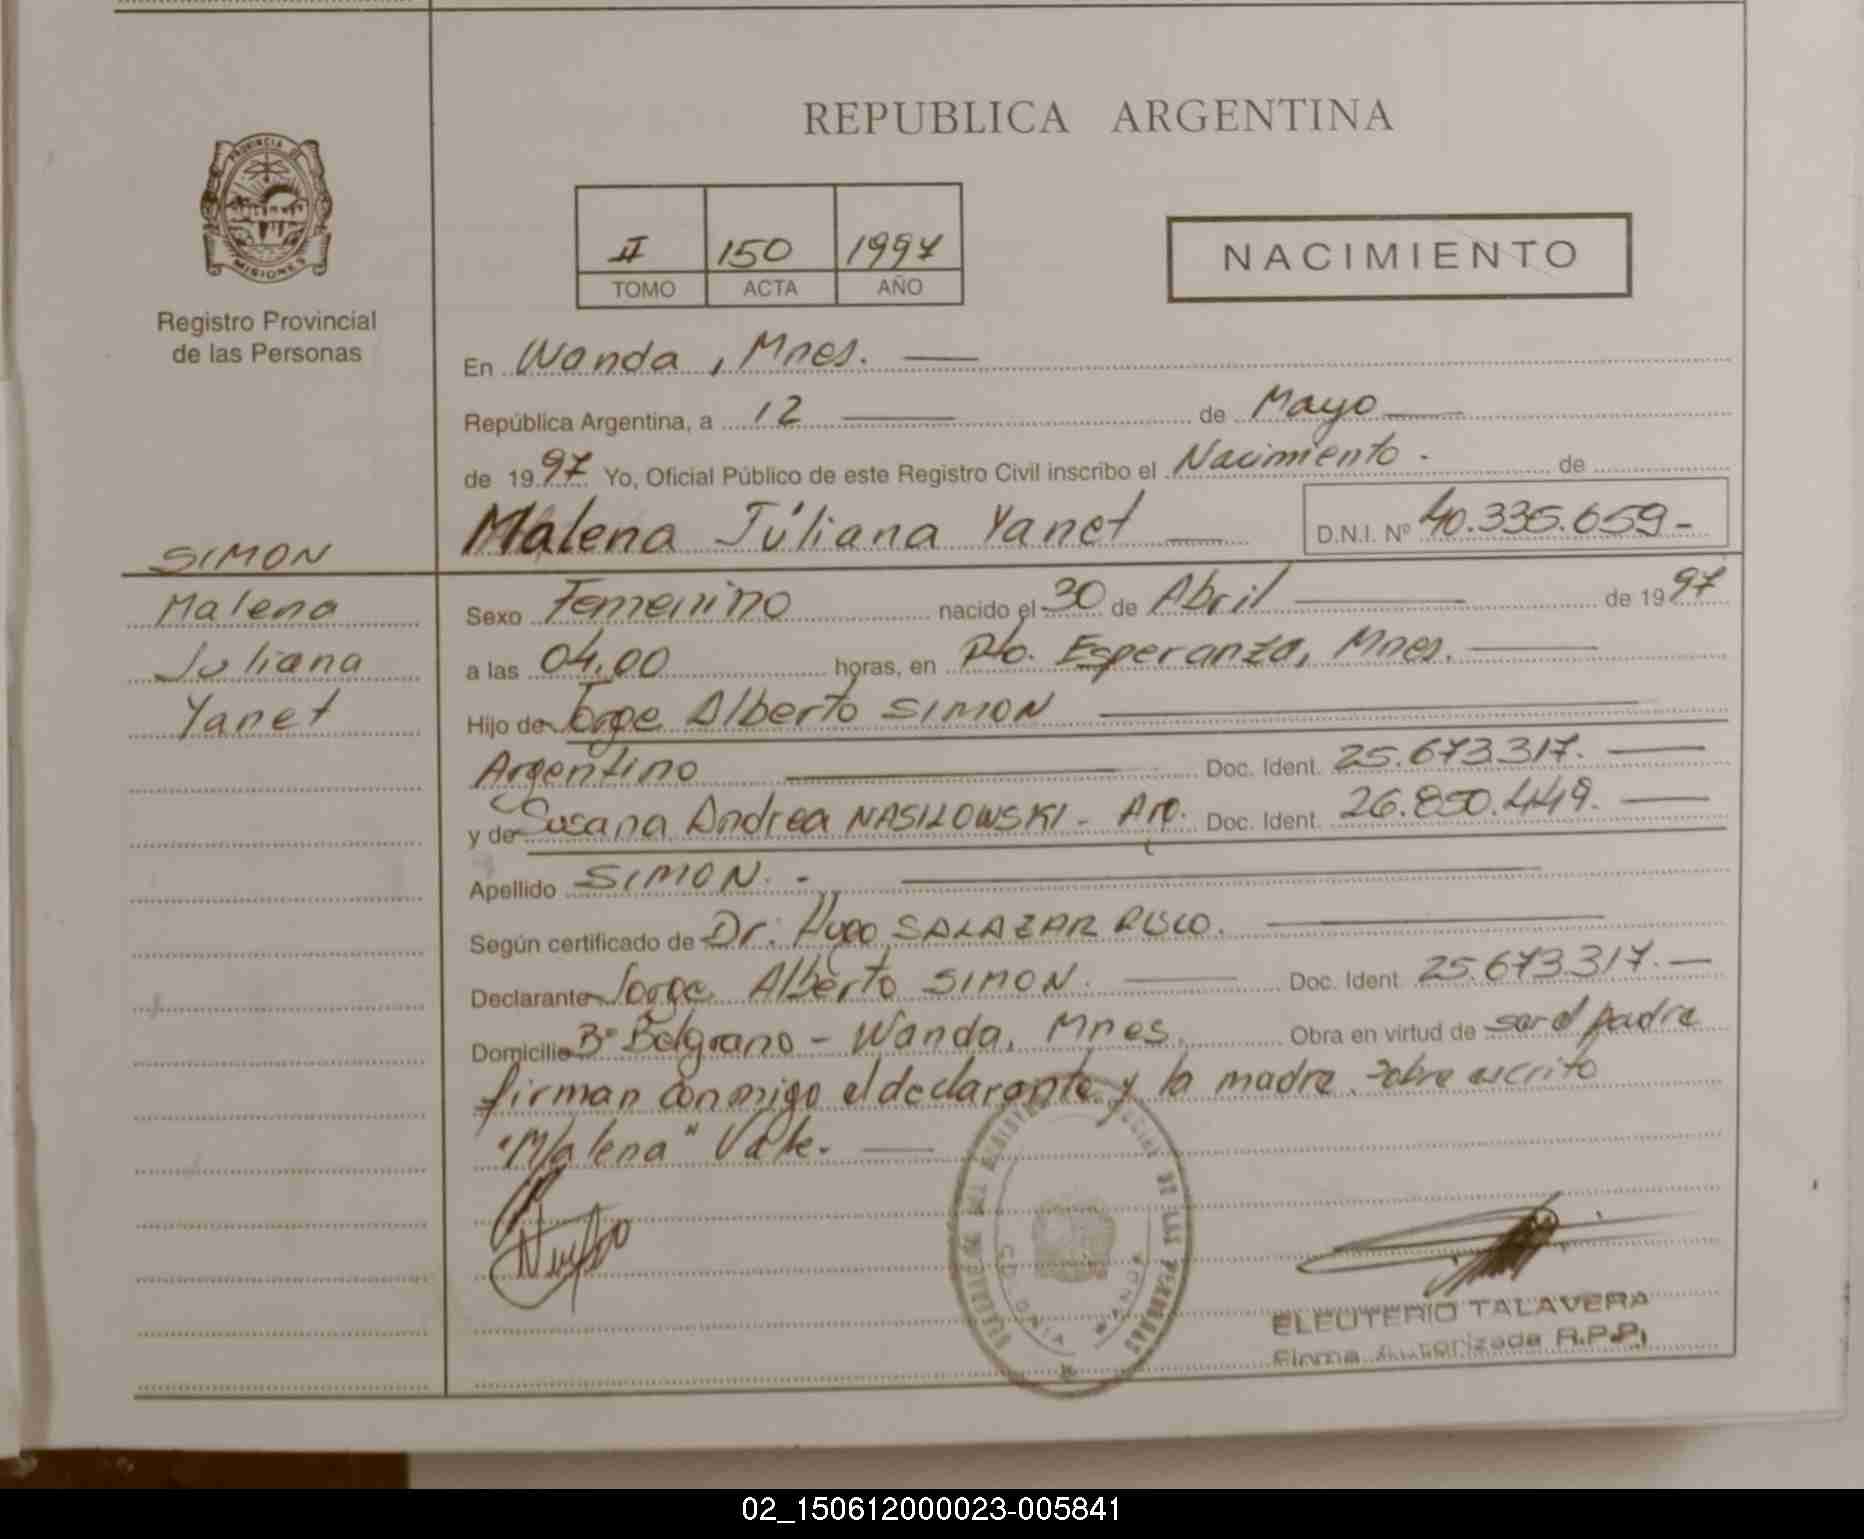 REPUBLICA ARGENTINA
PROVINCIA DE
MISIONES
Registro Provincial
de las Personas
II 150 1997
TOMO ACTA AÑO
NACIMIENTO
En Wanda, Mnes.
República Argentina, a 12 de Mayo
de 1997 Yo, Oficial Público de este Registro Civil inscribo el Nacimiento - de
Malena Júliana Yanet D.N.I. Nº 40.335.659-
SIMON
Malena
Juliana
Yanet
Sexo Femenino nacido el 30 de Abril de 1997
a las 04,00 horas, en Pto. Esperanza, Mnes.
Hijo de Jorge Alberto SIMON
Argentino Doc. Ident. 25.673.317.
y de Susana Andrea NASILOWSKI - Arg. Doc. Ident. 26.850.449.
Apellido SIMON. -
Según certificado de Dr. Hugo SALAZAR RISCO.
Declarante Jorge Alberto SIMON. Doc. Ident. 25.673.317.
Domicilio Bº Belgrano - Wanda, Mnes. Obra en virtud de ser el padre
firman conmigo el declarante y la madre. Sobre escrito
"Malena" Vale.
DE LAS PERSONAS
COLONIA WANDA
ELEUTERIO TALAVERA
Firma Autorizada R.P.P.
02_150612000023-005841